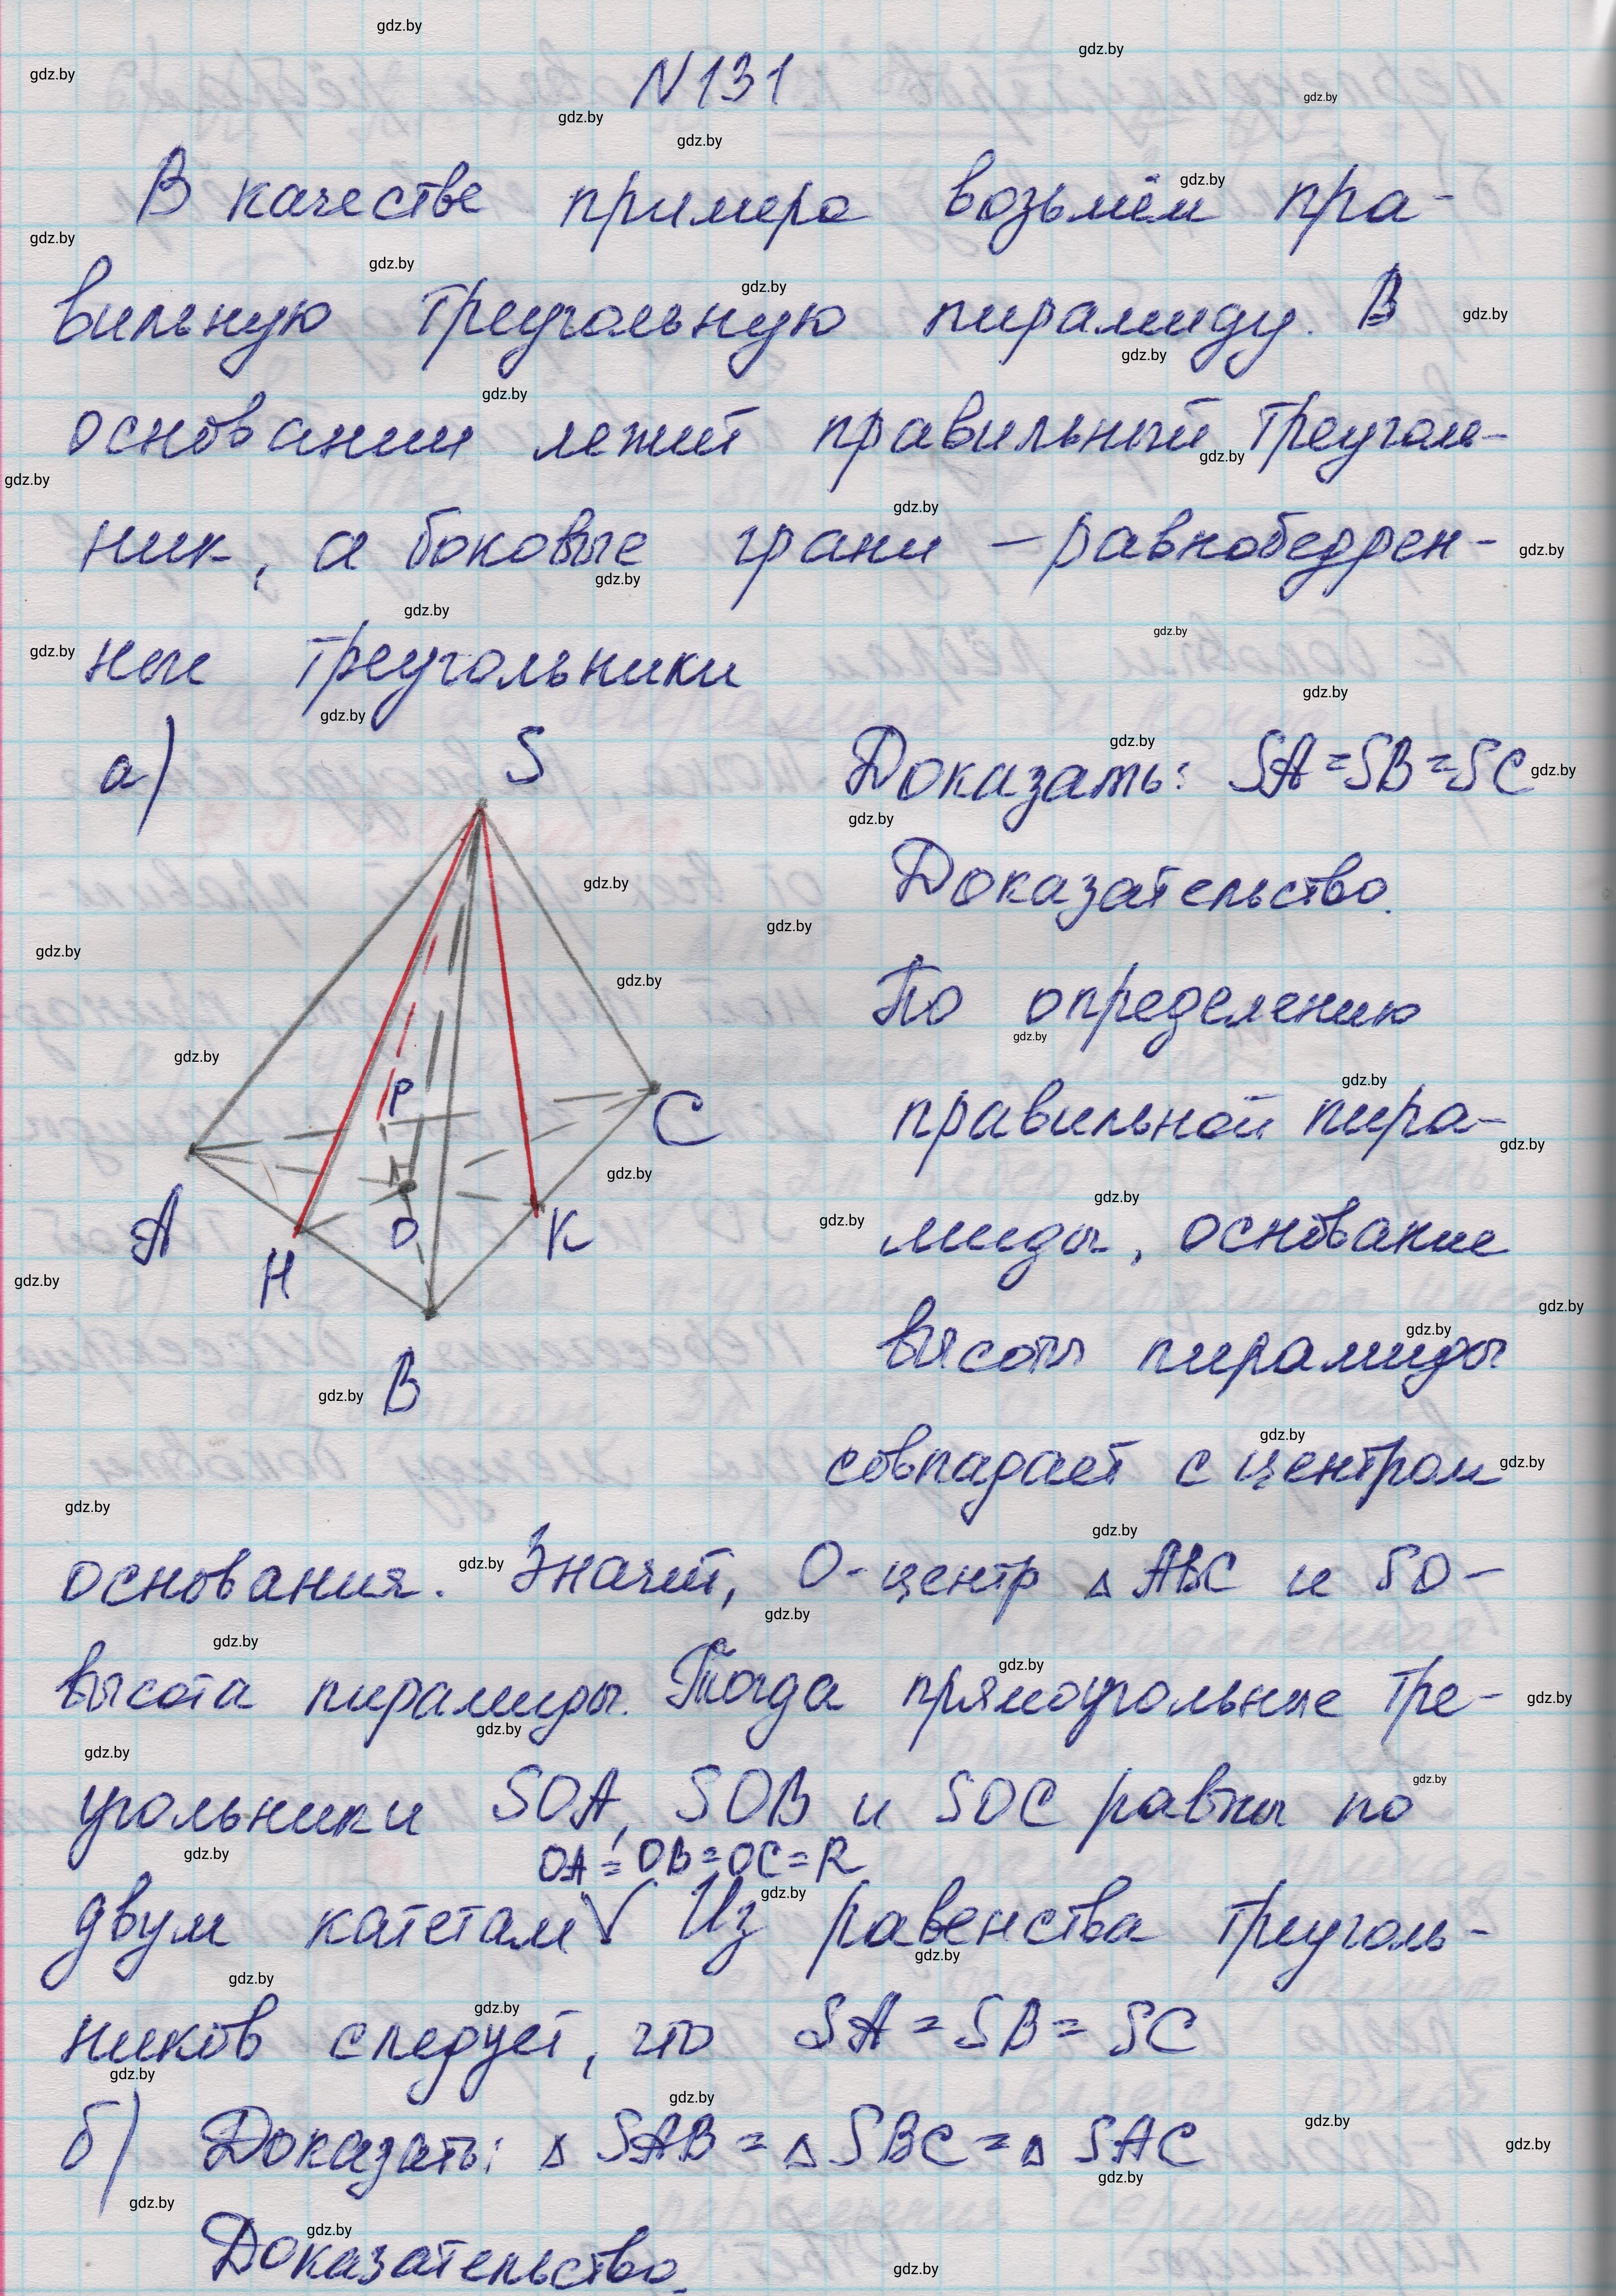 N131
В качестве примера возьмём пра-
вильную треугольную пирамиду. В
основании лежит правильный треуголь-
ник, а боковые грани – равнобедрен-
ные треугольники
а)
S
Доказать: SA=SB=SC
Доказательство.
По определению
P
C
правильной пира-
A
H
O
K
миды, основание
B
высоты пирамиды
совпадает с центром
основания. Значит, O-центр △ABC и SO-
высота пирамиды. Тогда прямоугольные тре-
угольники SOA, SOB и SOC равны по
OA=OB=OC=R
двум катетам √ Из равенства треуголь-
ников следует, что SA=SB=SC
б) Доказать: △SAB=△SBC=△SAC
Доказательство.
gdz.by